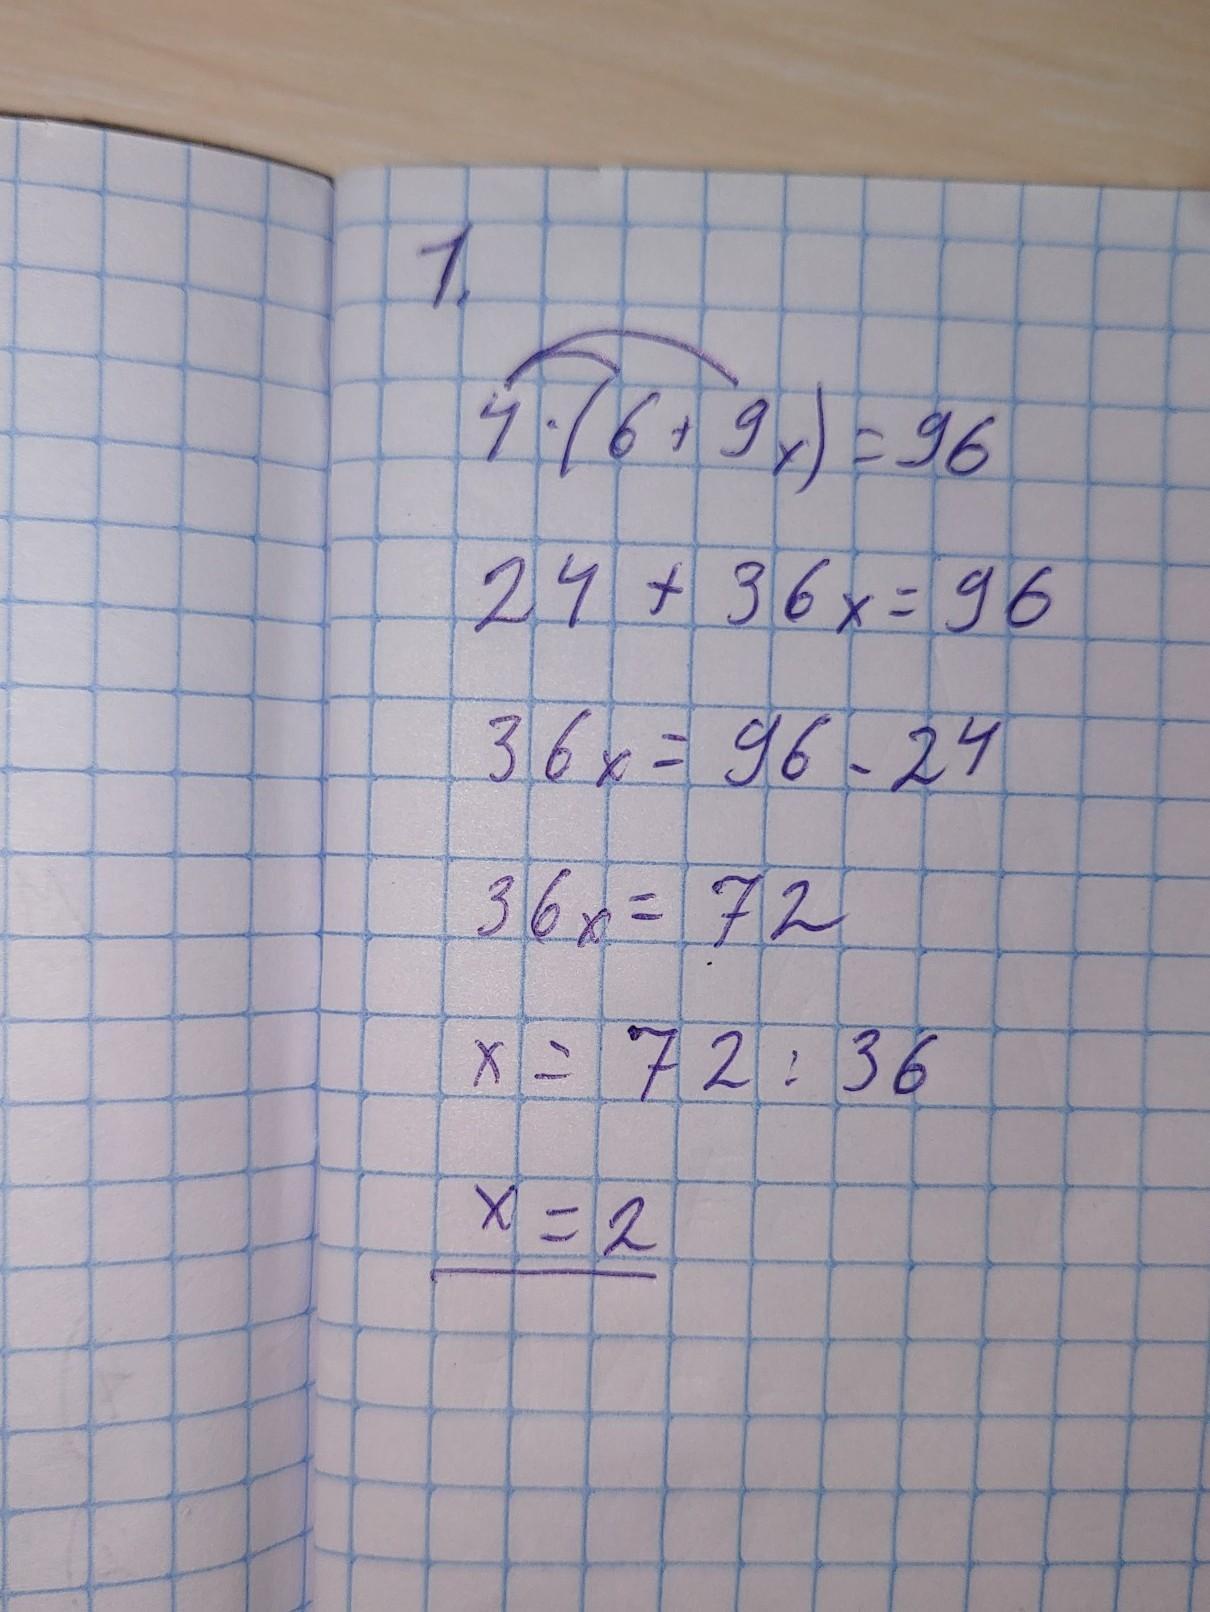 1.
4·(6+9x)=96
24+36x=96
36x=96-24
36x=72
x=72:36
x=2